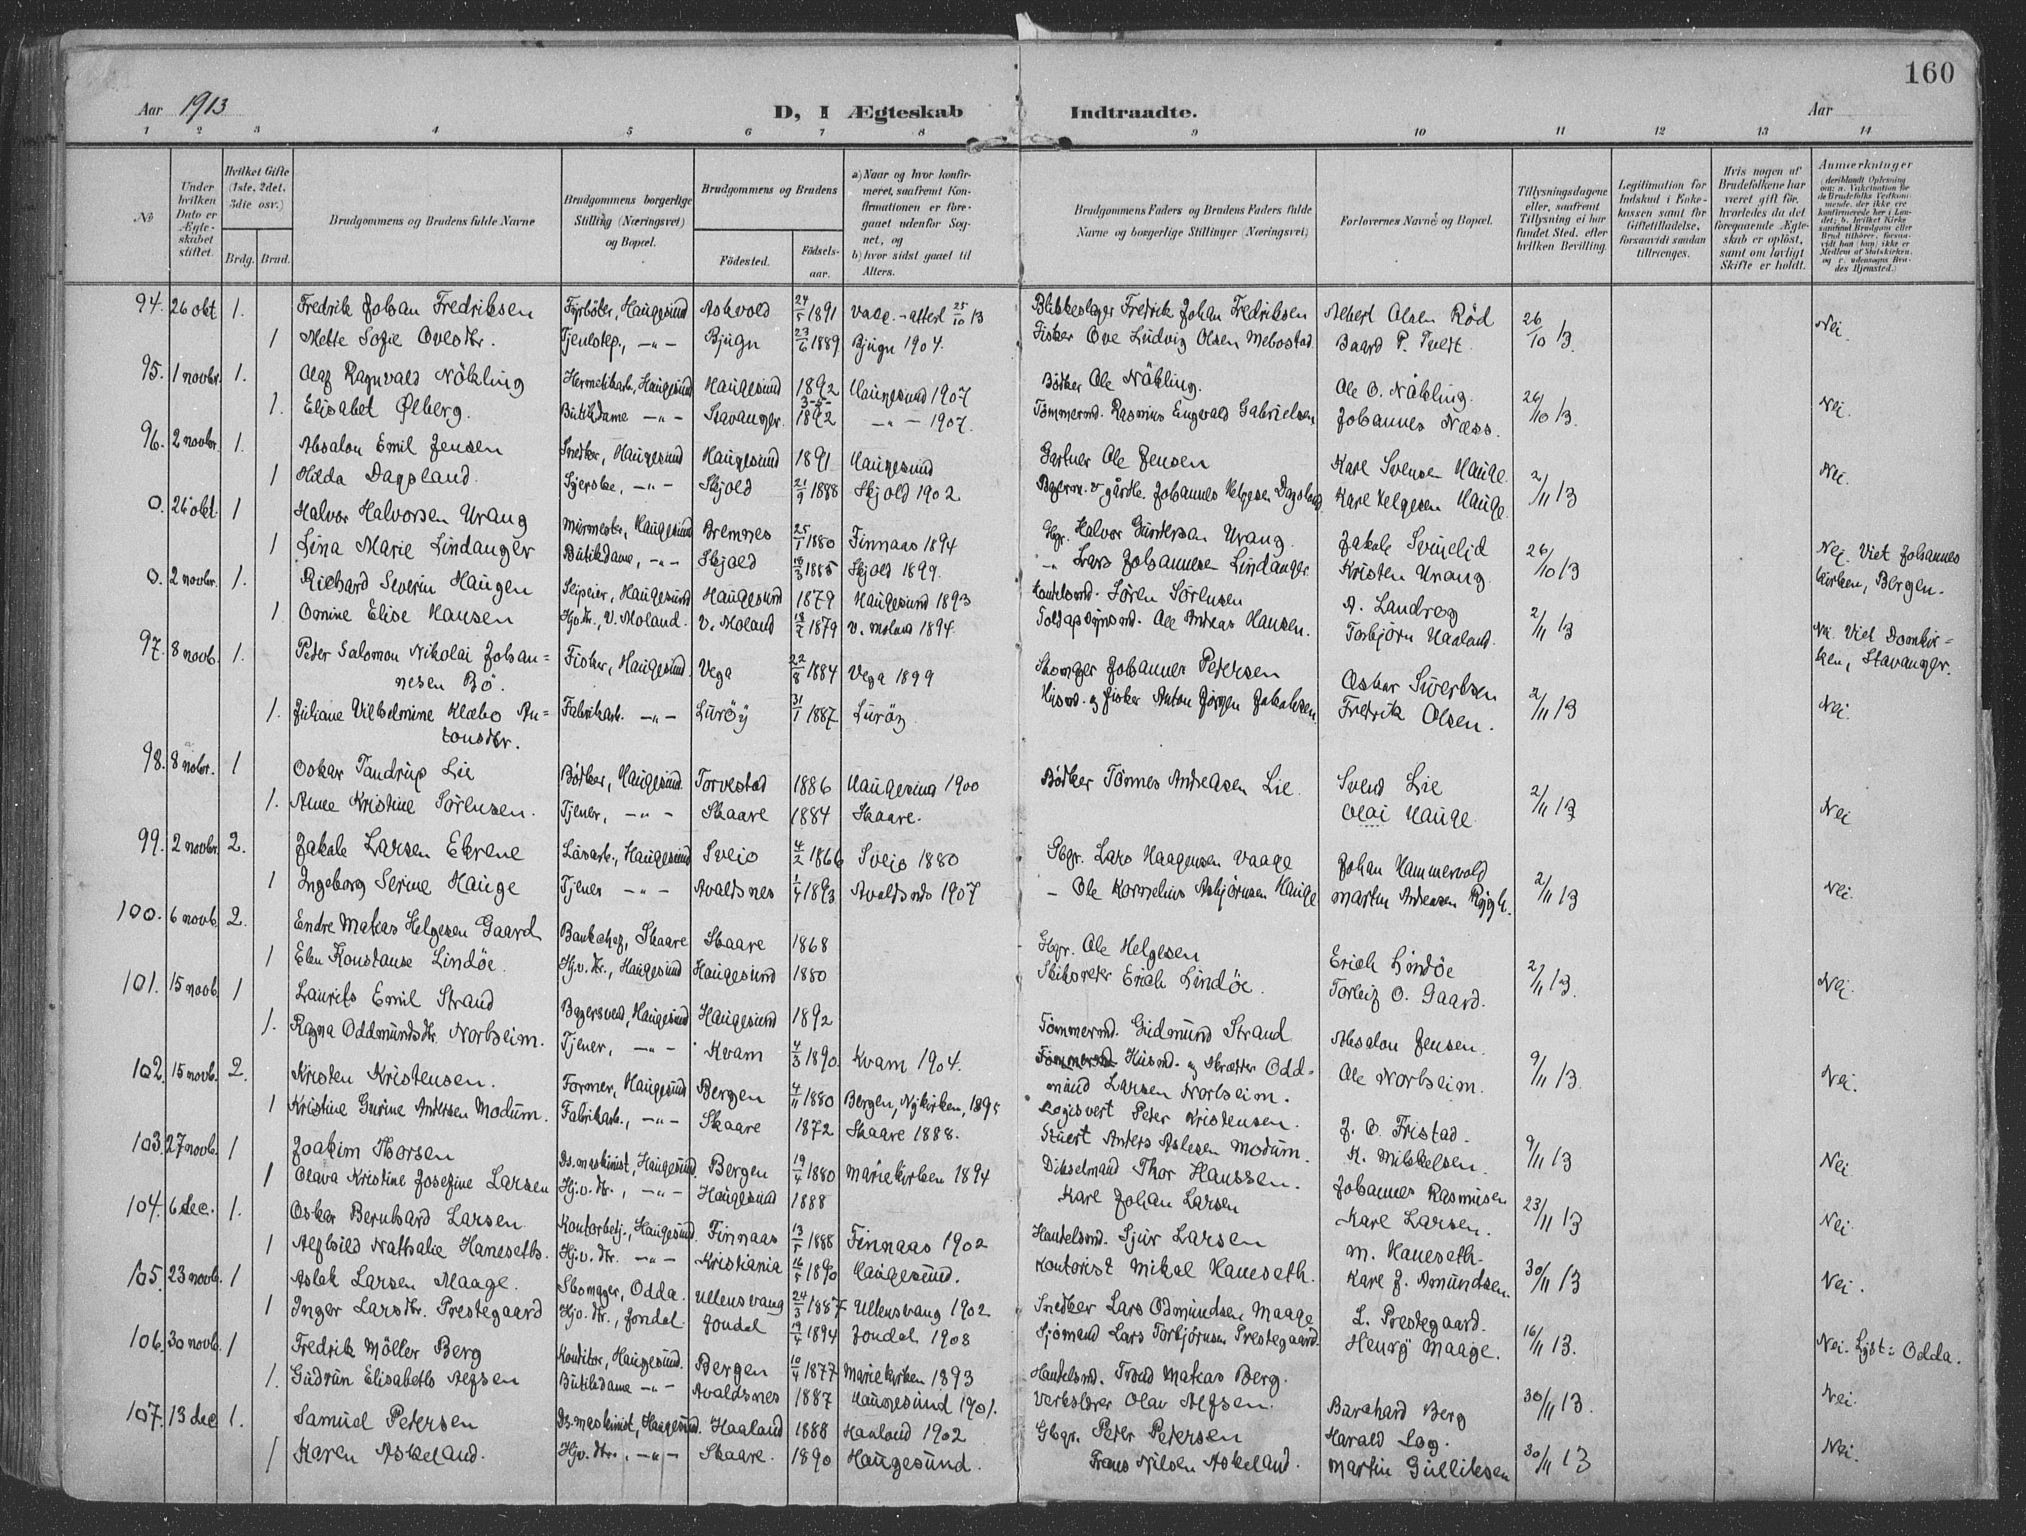 160
Aar 1913 D, I Ægteskab Indtraadte. Aar
1 2 3 4 5 6 7 8 9 10 11 12 13 14
№
Under hvilken Dato er Ægteskabet stiftet.
Hvilket Gifte (1ste, 2det, 3die osv.)
Brdg. Brud.
Brudgommens og Brudens fulde Navne
Brudgommens borgerlige Stilling (Næringsvei) og Bopæl.
Brudgommens og Brudens
Fødested. Fødselsaar.
a) Naar og hvor konfirmeret, saafremt Konfirmationen er foregaaet udenfor Sognet, og
b) hvor sidst gaaet til Alters.
Brudgommens Faders og Brudens Faders fulde Navne og borgerlige Stillinger (Næringsvei)
Forlovernes Navne og Bopæl.
Tillysningsdagene eller, saafremt Tillysning ei har fundet Sted, efter hvilken Bevilling.
Legitimation for Indskud i Enkekassen samt for Giftetilladelse, forsaavidt saadan tiltrænges.
Hvis nogen af Brudefolkene har været gift før, hvorledes da det foregaaende Ægteskab er opløst, samt om lovligt Skifte er holdt.
Anmærkninger
94. 26 okt. 1. Fredrik Johan Fredriksen Fyrbøter, Haugesund Askvold 24/5 1891 Vaag. - attest 25/10 13 Blikkeslager Fredrik Johan Fredriksen Albert Olsen Rød 26/10 13. Nei
1 Mette Sofie Ovesdtr. Tjenstep., -"- Bjugn 23/6 1889 Bjugn 1904. Fisker Ove Ludvig Olsen Mebostad Baard P. Tvedt.
95. 1 novbr. 1. Olaf Ragnvald Nökling Hermetikarb., Haugesund Haugesund 1892 Haugesund 1907 Bödker Ole Nökling. Ole O. Nökling. 26/10 13. Nei.
1. Elisabet Ølberg. Butikdame -"- Stavanger 1892 -"- 1907. Tømmermd. Rasmus Engvald Gabrielsen Johannes Næss.
96. 2 novbr. 1. Absalon Emil Jensen Snedker, Haugesund Haugesund 1891 Haugesund Gartner Ole Jensen Karl Svensen Hauge 2/11 13 Nei.
1 Hilda Dagsland. Syerske, -"- Skjold 21/9 1888 Skjold 1902. Johannes Helgesen Dagsland Karl Helgesen Hauge.
0. 26 okt. 1 Halvor Halvorsen Urang Murmester, Haugesund Bremnes 25/1 1880 Finnaas 1894 Gbr. Halvor Gundersen Urang. Jakob Svinelid 26/10 13 Nei. Viet Johannes
1 Lina Marie Lindanger Butikdame, -"- Skjold 1885 Skjold 1899. -"- Lars Johannesen Lindanger Kristen Urang. kirken, Bergen.
0. 2 novbr. 1. Richard Severin Haugen Haugesund Haugesund 1879 Haugesund 1893 Handelsmd. Sören Sörensen A. Landrog 2/11 13 Nei. Viet Domkir=
1 Osmine Elise Hansen Hjv. dtr., V. Moland. V. Moland 1879 V. Moland 1894. Toldopsynsmd. Ole Andreas Hansen. Torbjörn Haaland. ken, Stavanger.
97. 8 novb. 1. Peder Salomon Nikolai Johan- Fisker, Haugesund. Vega 22/8 1884 Vega 1899 Skomager Johannes Petersen Oskar Sivertsen 2/11 13 Nei.
nesen Bö.
1. Juliane Vilhelmine Klæbo An= Fabrikarb. -"- Luröy 31/1 1887 Luröy Husmd. og Fisker Anton Jörgen Jakobsen. Fredrik Olsen.
tonsdtr.
98. 8 nobr. 1 Oskar Tandrup Lie Bødker, Haugesund Torvestad 1886 Haugesund 1900 Bødker Tönnes Andreasen Lie. Svend Lie 2/11 13 Nei
1. Anne Kristine Sörensen. Tjener, -"- Skaare 1884 Skaare. Olai Hauge
99. 2 novbr. 2. Jakob Larsen Ekrene Lösarb., Haugesund Sveio 4/2 1866 Sveio 1880 Gbgr. Lars Haagensen Vaage Johan Hammervold 2/11 13 Nei.
1 Ingeborg Serine Hauge Tjener -"- Avaldsnes 1/4 1893 Avaldsnes 1907 - Ole Kornelius Asbjörnsen Hauge Martin Andreasen Rygh.
100. 6 novb. 2. Endre Matias Helgesen Gaard Bankchef, Skaare Skaare 1868 Gbgr. Ole Helgesen Erich Lindöe 2/11 13. Nei.
1 Elen Konstanse Lindöe. Hjv. dtr., Haugesund Haugesund 1880 Skibsreder Erich Lindöe. Torleif O. Gaard.
101. 15 novb. 1 Laurits Emil Strand Bagersvend, Haugesund Haugesund 1892 Tömmermd. Gudmund Strand Absalon Jensen. 9/11 13. Nei.
1. Ragna Oddmundsdtr Norheim. Tjener, -"- Kvam 4/3 1890 Kvam 1904. Husmd. og Skrædder Odd= Ole Norheim.
mund Larsen Norheim.
102. 15 novb. 2. Kristen Kristensen. Former, Haugesund Bergen 4/11 1880 Bergen, Nykirken, 1895 Logisvert Peter Kristensen. J. O. Fristad. 9/11 13 Nei
1 Kristine Gurine Andersen Modum. Fabrikarb., -"- Skaare 1872 Skaare 1888. Stuert Anders Aslesen Modum. K. Mikkelsen.
103. 27 novb. 1 Joakim Thorsen Ds. maskinist, Haugesund. Bergen 19/4 1880 Mariekirken 1894 Dikselmand Thor Hanssen. Johannes Rasmusen 23/11 13 Nei
1 Olava Kristine Josefine Larsen Hjv. dtr., -"- Haugesund 1888 Karl Johan Larsen Karl Larsen.
104. 6 dec. 1. Oskar Bernhard Larsen Kontorbetj., Haugesund. Finnaas 13/5 1888 Finnaas 1902 Handelsmd. Sjur Larsen M. Haneseth. 30/11 13 Nei.
1 Alfhild Nathalie Haneseth. Hjv. dtr. -"- Kristiania 16/5 1890 Haugesund. Kontorist Mikal Haneseth. Karl J. Amundsen.
105. 23 novb. 1 Aslak Larsen Maage. Skomager, Odda. Ullensvang 24/3 1887 Ullensvang 1902 Snedker Lars Odmundsen Maage L. Prestegaard. 16/11 13. Nei. Lyst: Odda.
1 Inger Larsdtr. Prestegaard Hjv. dtr., Jondal Jondal 19/4 1894 Jondal 1908 Sjømand Lars Torbjörnsen Prestegaard. Henry Maage.
106. 30 novb. 1 Fredrik Möller Berg Konditor, Haugesund. Bergen 10/4 1877 Mariekirken 1893 Handelsmd. Matias Berg. Burchard Berg 30/11 13. Nei.
1. Gudrun Elisabeth Alfsen Butikdame -"- Avaldsnes 1887 Haugesund 1901. Verkseier Olav Alfsen. Harald Log.
107. 13 dec. 1. Samuel Petersen Ds. maskinist, Haugesund. Haaland 1888 Haaland 1902 Gbgr. Peter Petersen Martin Gulliksen 30/11 13 Nei.
1 Karen Askeland. Hjv. dtr. -"- Skaare. 1890 Haugesund. Frans Nilsen Askeland.